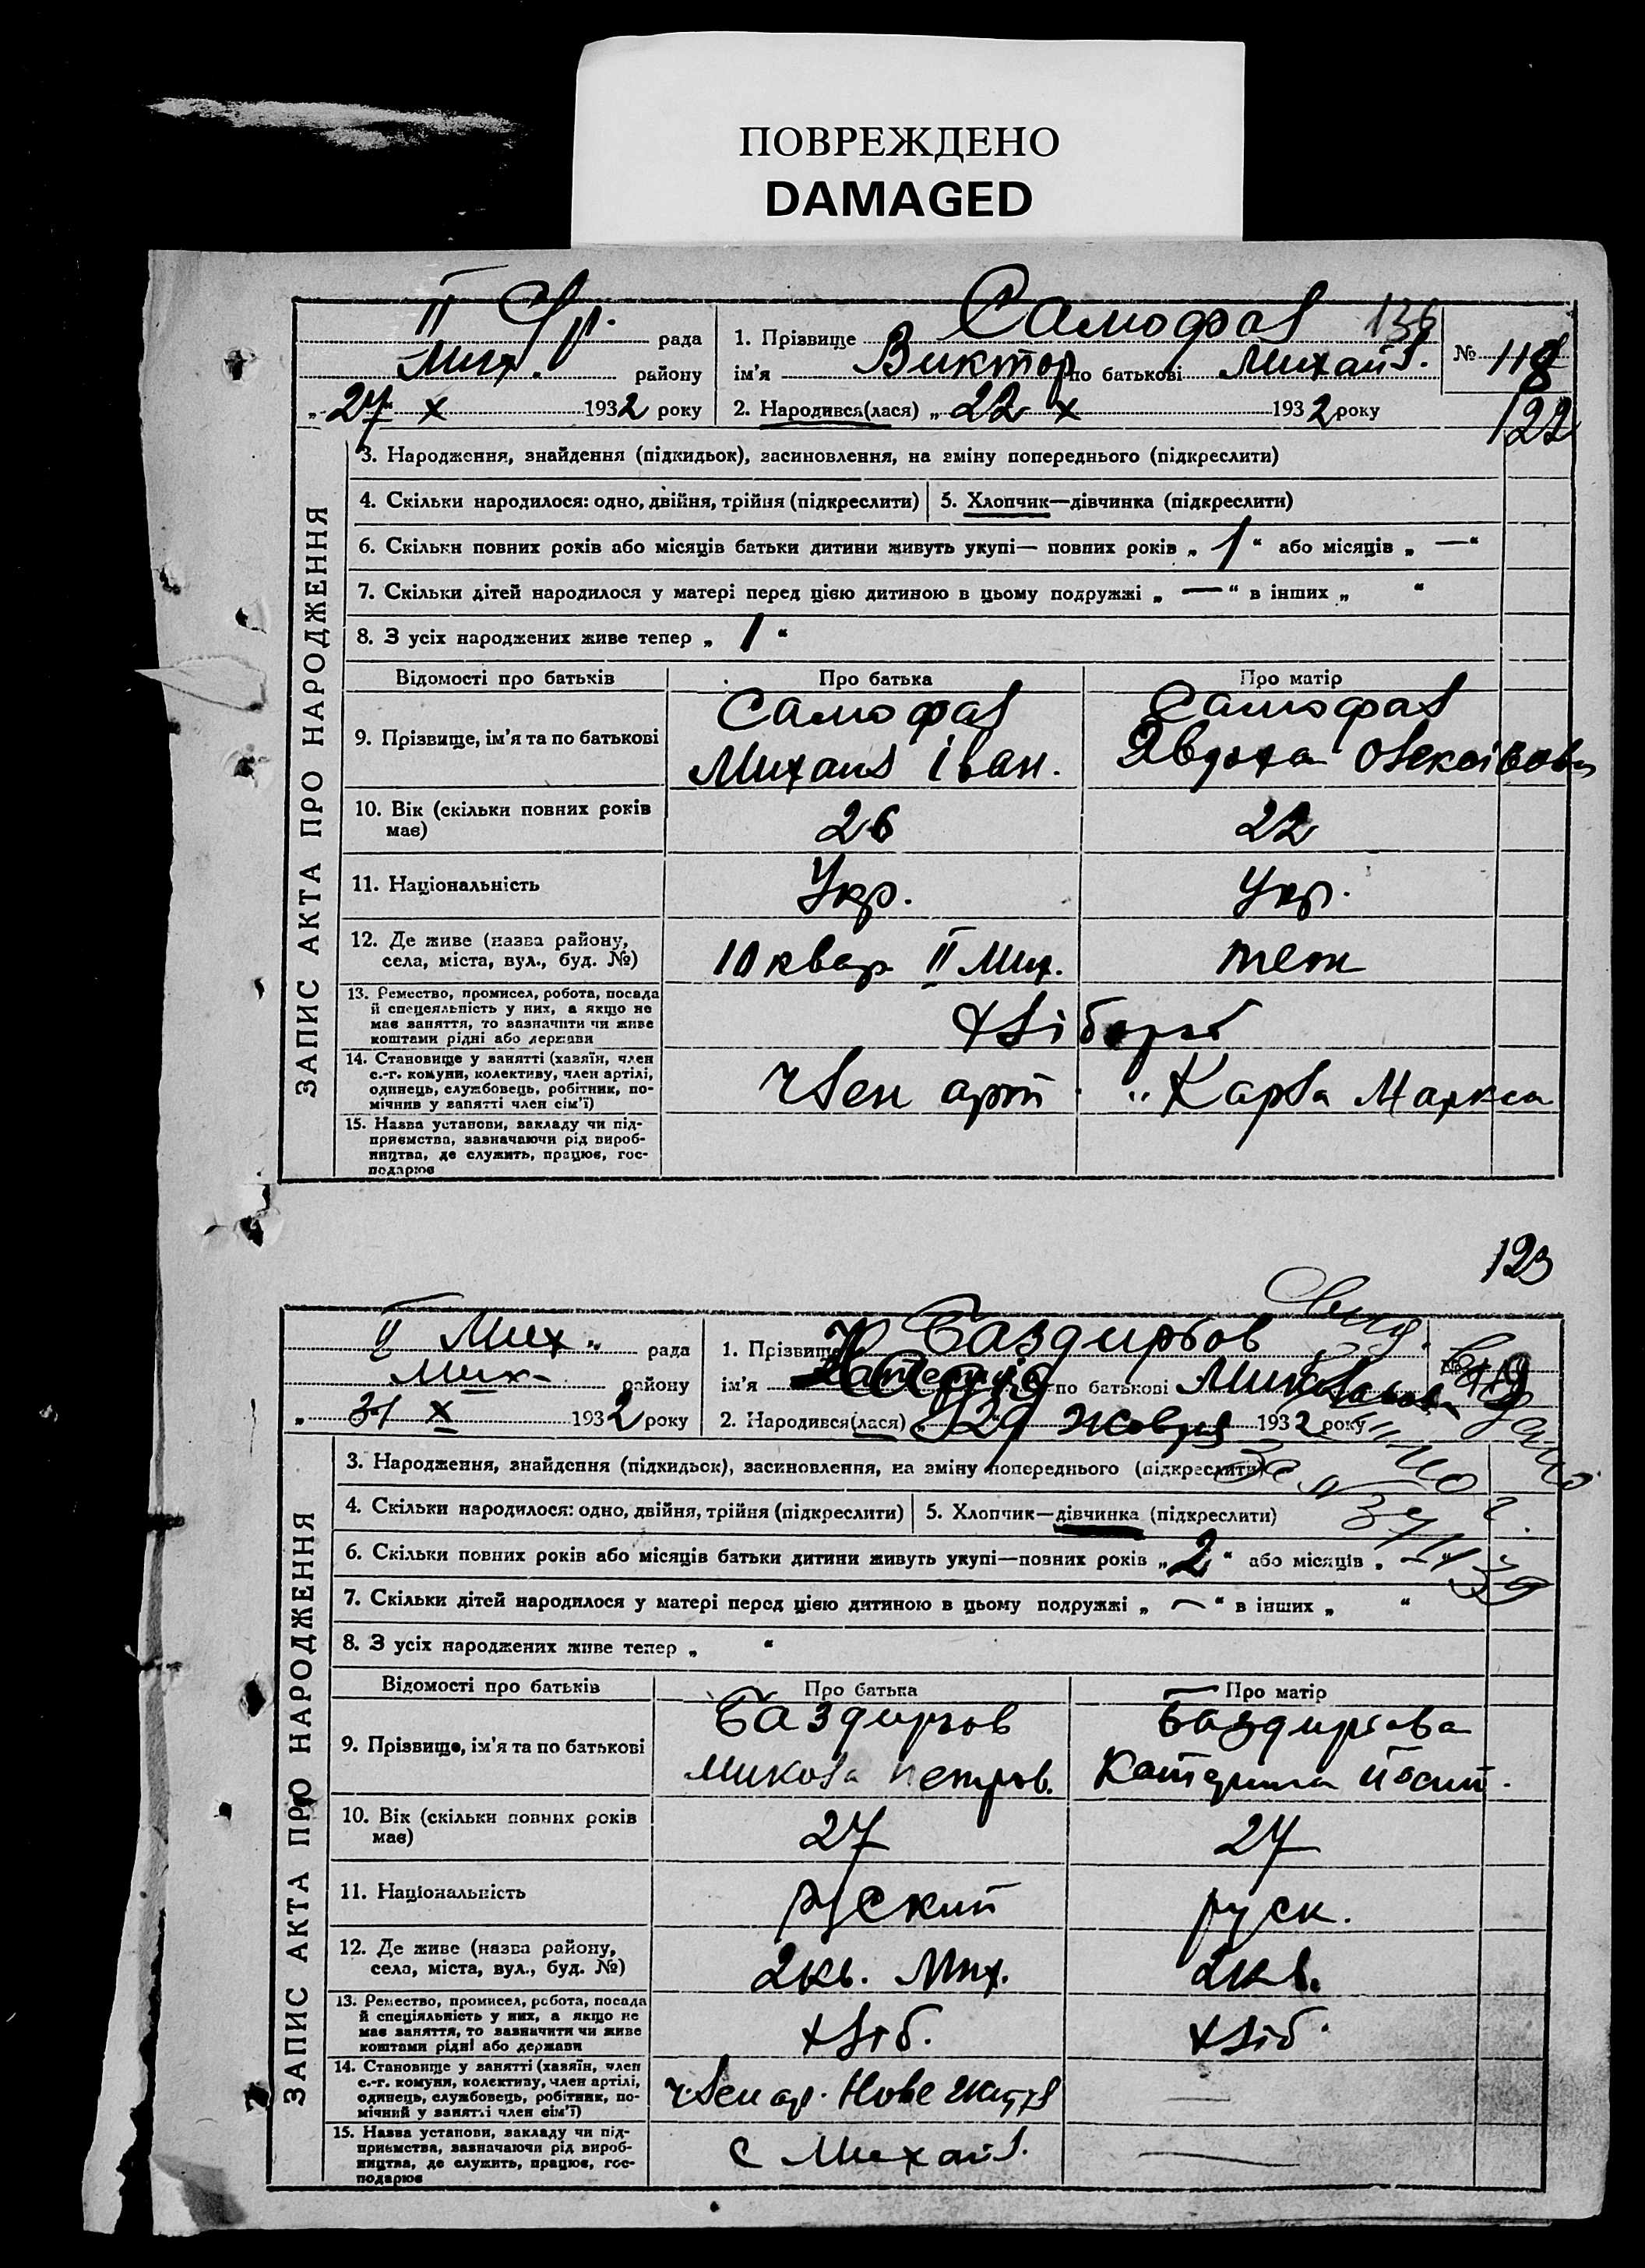 ПОВРЕЖДЕНО
DAMAGED
II рада
Мих. району
„ 27 X 1932 року
1. Прізвище Самофал 136
ім’я Виктор по батькові Михайл.
2. Народився(лася) „ 22 X 1932 року
№ 118
122
ЗАПИС АКТА ПРО НАРОДЖЕННЯ
3. Народження, знайдення (підкидьок), засиновлення, на зміну попереднього (підкреслити)
4. Скільки народилося: одно, двійня, трійня (підкреслити)
5. Хлопчик—дівчинка (підкреслити)
6. Скільки повних років або місяців батьки дитини живуть укупі— повних років „ 1 “ або місяців „ — “
7. Скільки дітей народилося у матері перед цією дитиною в цьому подружжі „ — “ в інших „ “
8. З усіх народжених живе тепер „ 1 “
Відомості про батьків Про батька Про матір
9. Прізвище, ім’я та по батькові
Самофал
Михайл Іван.
Самофал
Явдоха Олексіївова
10. Вік (скільки повних років має)
26 22
11. Національність
Укр. Укр.
12. Де живе (назва району, села, міста, вул., буд. №)
10 квар II Мих. теж
13. Ремество, промисел, робота, посада
й спеціяльність у них, а якщо не
має заняття, то зазначити чи живе
коштами рідні або держави
хлібороб
14. Становище у занятті (хазяїн, член
с.-г. комуни, колективу, член артілі,
одинець, службовець, робітник, по-
мічник у занятті член сім’ї)
член арт. „Карла Маркса
15. Назва установи, закладу чи під-
приємства, зазначаючи рід вироб-
ництва, де служить, працює, гос-
подарює
123
II Мих. рада
Мих. району
„ 31 X 1932 року
1. Прізвище Баздирьов
ім’я по батькові Миколаевна
2. Народився(лася) 29 Жовтня 1932 року
№ 119
ЗАПИС АКТА ПРО НАРОДЖЕННЯ
3. Народження, знайдення (підкидьок), засиновлення, на зміну попереднього (підкреслити)
4. Скільки народилося: одно, двійня, трійня (підкреслити)
5. Хлопчик—дівчинка (підкреслити)
6. Скільки повних років або місяців батьки дитини живуть укупі—повних років „ 2 “ або місяців „
7. Скільки дітей народилося у матері перед цією дитиною в цьому подружжі „ — “ в інших „ “
8. З усіх народжених живе тепер „ “
Відомості про батьків Про батька Про матір
9. Прізвище, ім’я та по батькові
Баздирьов
Микола Петров.
Баздирьова
Катерина Йосип.
10. Вік (скільки повних років має)
27 27
11. Національність
руский руск.
12. Де живе (назва району, села, міста, вул., буд. №)
2 кв. Мих. 2 кв.
13. Ремество, промисел, робота, посада
й спеціяльність у них, а якщо не
має заняття, то зазначити чи живе
коштами рідні або держави
хліб. хліб.
14. Становище у занятті (хазяїн, член
с.-г. комуни, колективу, член артілі,
одинець, службовець, робітник, по-
мічний у занятті член сім’ї)
член ар. Нове Життя —
15. Назва установи, закладу чи під-
приємства, зазначаючи рід вироб-
ництва, де служить, працює, гос-
подарює
С Михайл. —